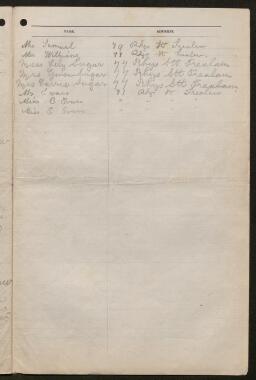 NAME. ADDRESS.
Mr Samuel 79 Rhys St Trealaw
Mr Williams 78 Rhys St Trealaw
Miss Lily Sugar 77 Rhys Stt Trealaw
Mrs Sugar 77 Rhys Stt Trealaw
Mrs Sugar 77 Rhys Stt Trealaw
Mr Evans 81 Rhys St Trealaw
Miss B Evans " " "
Miss E Evans " " "